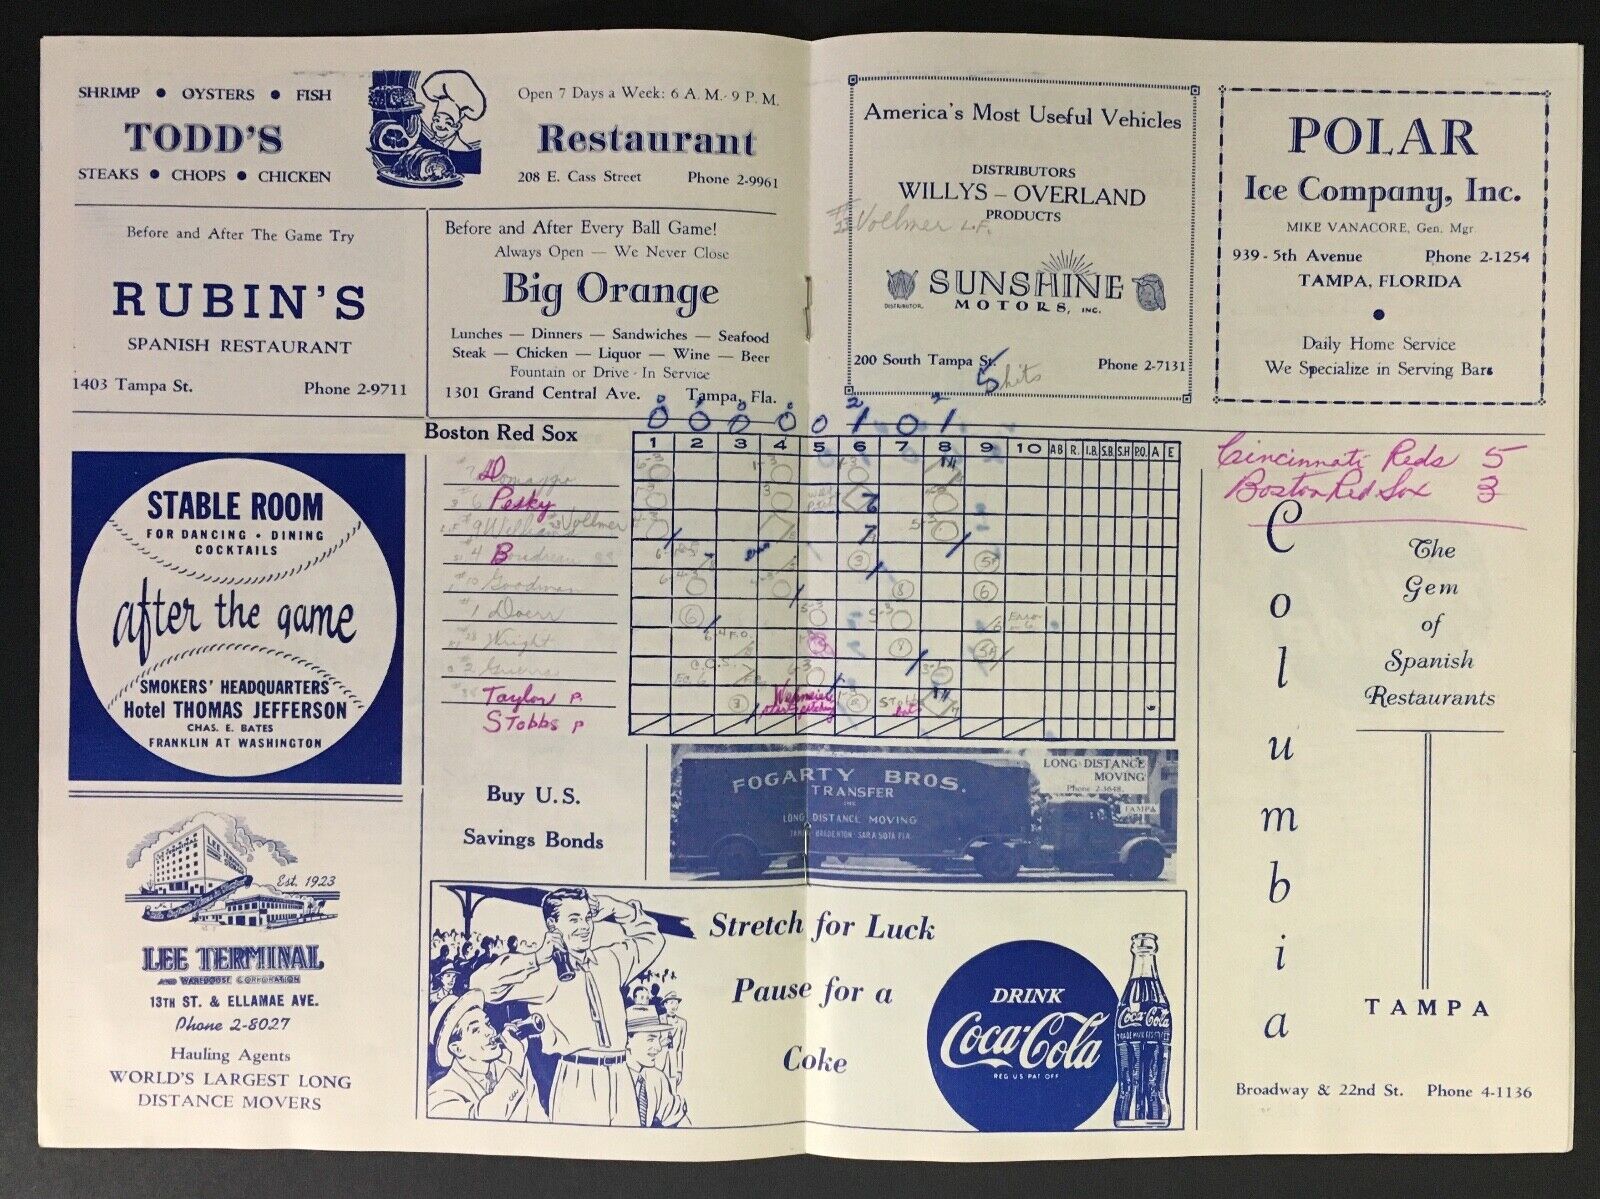 SHRIMP ● OYSTERS ● FISH
TODD'S
STEAKS ● CHOPS ● CHICKEN
Open 7 Days a Week: 6 A.M.-9 P.M.
Restaurant
208 E. Cass Street Phone 2-9961
Before and After The Game Try
RUBIN'S
SPANISH RESTAURANT
1403 Tampa St. Phone 2-9711
Before and After Every Ball Game!
Always Open — We Never Close
Big Orange
Lunches — Dinners — Sandwiches — Seafood
Steak — Chicken — Liquor — Wine — Beer
Fountain or Drive-In Service
1301 Grand Central Ave. Tampa, Fla.
America's Most Useful Vehicles
DISTRIBUTORS
WILLYS – OVERLAND
PRODUCTS
Vollmer L.F.
DISTRIBUTOR
SUNSHINE
MOTORS, INC.
200 South Tampa St. Phone 2-7131
5 hits
POLAR
Ice Company, Inc.
MIKE VANACORE, Gen. Mgr.
939 - 5th Avenue Phone 2-1254
TAMPA, FLORIDA
●
Daily Home Service
We Specialize in Serving Bars
STABLE ROOM
FOR DANCING · DINING
COCKTAILS
after the game
SMOKERS' HEADQUARTERS
Hotel THOMAS JEFFERSON
CHAS. E. BATES
FRANKLIN AT WASHINGTON
Est. 1923
LEE TERMINAL
AND WAREHOUSE CORPORATION
13TH ST. & ELLAMAE AVE.
Phone 2-8027
Hauling Agents
WORLD'S LARGEST LONG
DISTANCE MOVERS
0 0 0 0 0 1 0 1
Boston Red Sox
1 2 3 4 5 6 7 8 9 10 AB R. I.B. S.B. S.H P.O. A E
Pesky
#9 Williams Vollmer
#4 Boudreau
#10 Goodman
#1 Doerr
Wright
#2 Guerra
Taylor P.
Stobbs P
Buy U.S.
Savings Bonds
FOGARTY BROS.
TRANSFER
INC
LONG DISTANCE MOVING
TAMPA BRADENTON - SARASOTA FLA.
LONG DISTANCE
MOVING
Phone 2-3648
TAMPA
Stretch for Luck
Pause for a
Coke
DRINK
Coca-Cola
REG US PAT OFF
Coca-Cola
Cincinnati Reds 5
Boston Red Sox 3
Columbia
The
Gem
of
Spanish
Restaurants
TAMPA
Broadway & 22nd St. Phone 4-1136